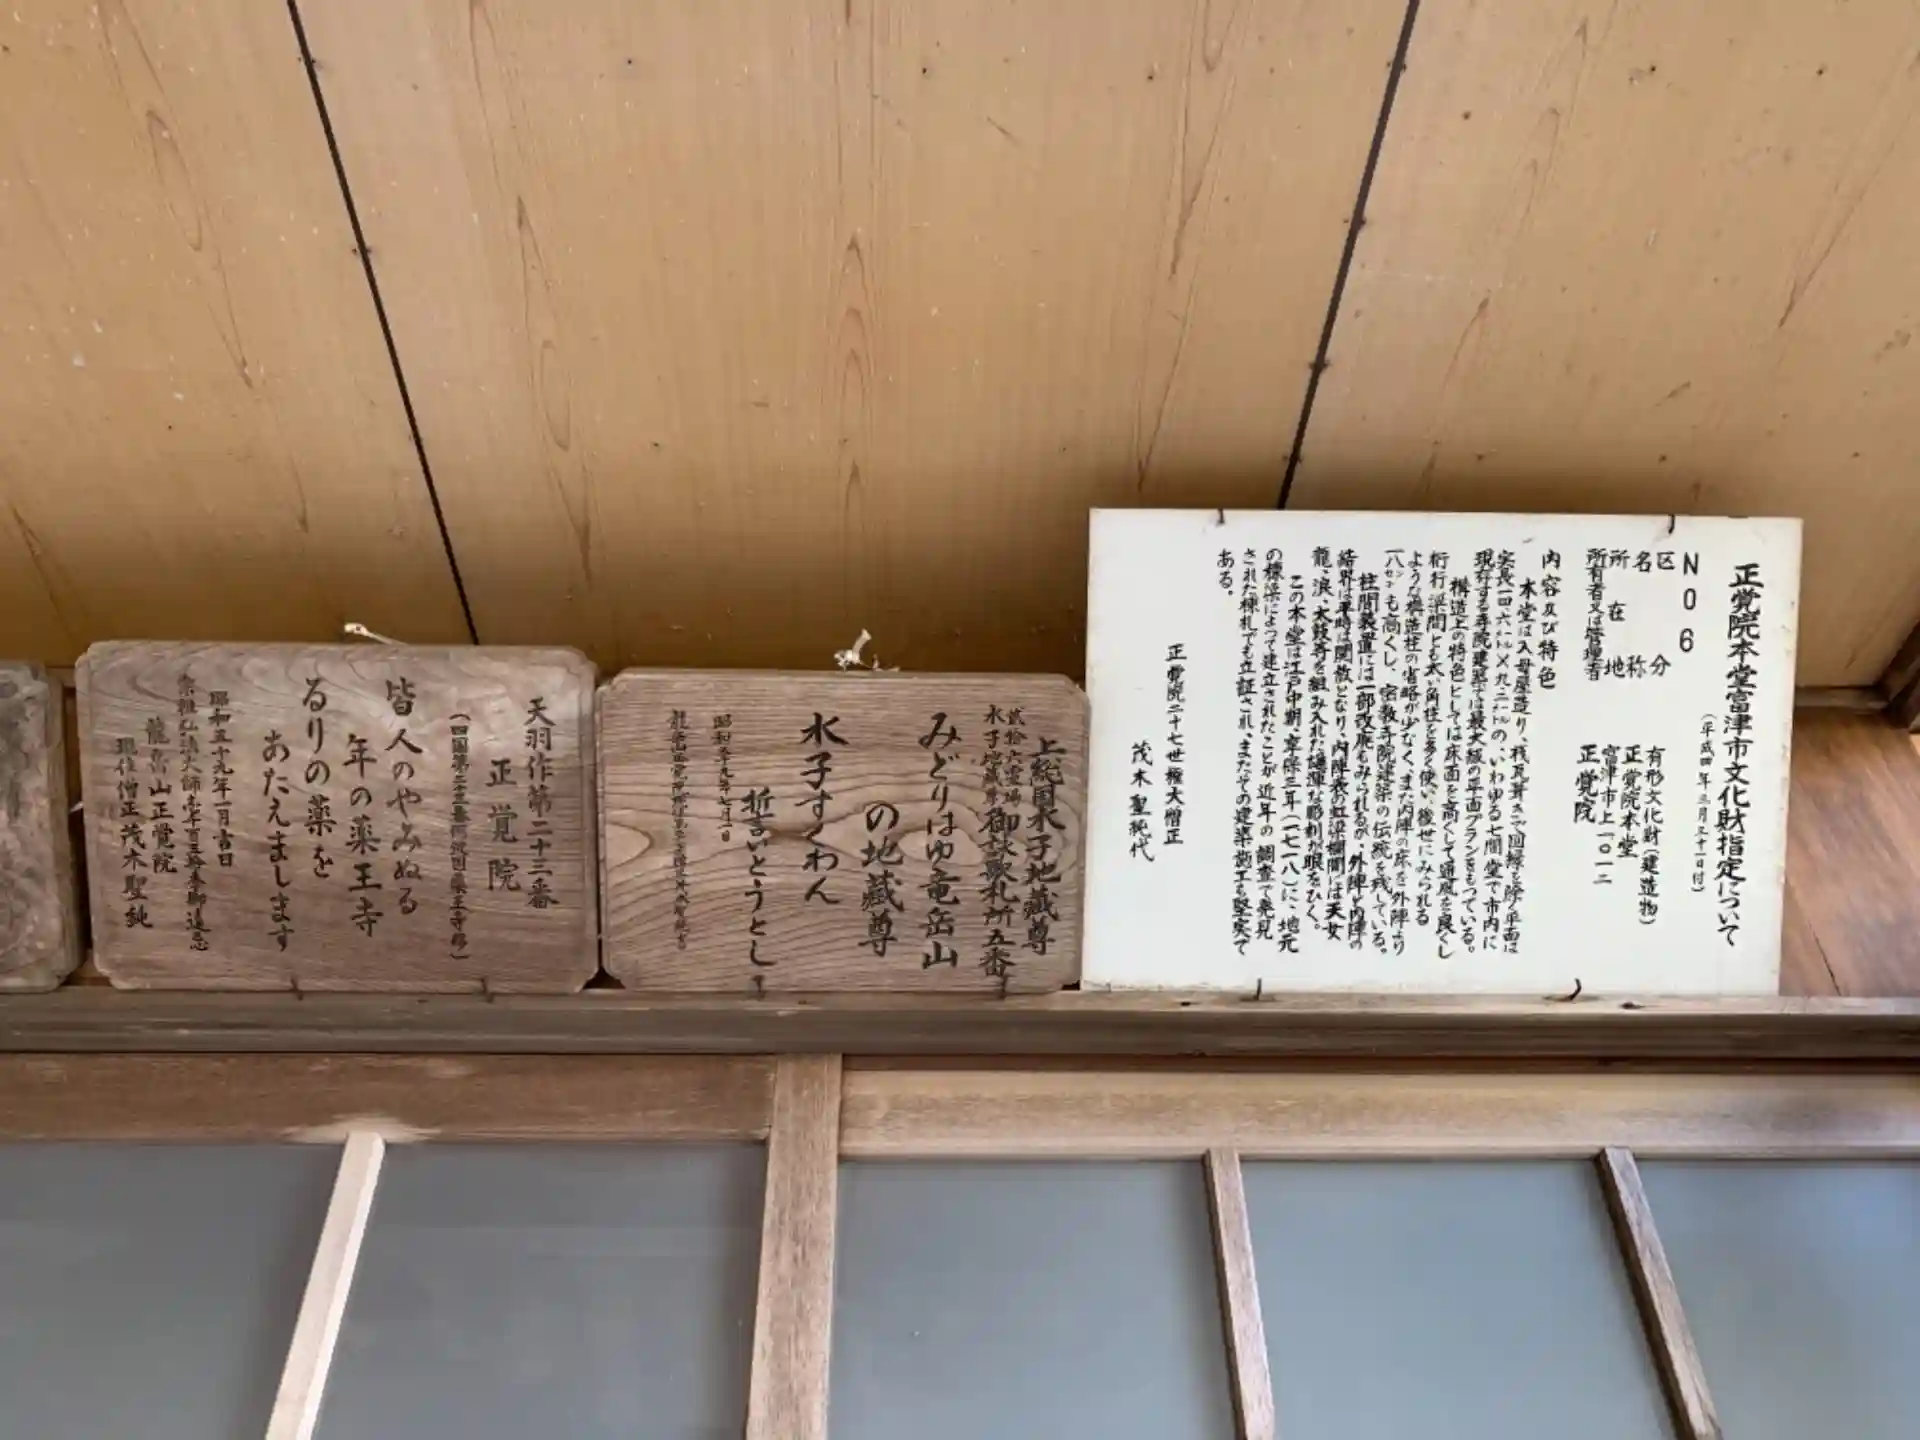 正覚院本堂富津市文化財指定について
(平成四年三月三十一日付)
NO6
区分 有形文化財(建造物)
名称 正覚院本堂
所在地 富津市上一〇一二
所有者又は管理者 正覚院
内容及び特色
本堂は入母屋造り、桟瓦葺きで回縁を除く平面は
実長一四・六㍍×九・二㍍の、いわゆる七間堂で市内に
現存する寺院建築では最大級の平面プランをもっている。
構造上の特色としては床面を高くして通風を良くし
桁行、梁間とも太い角柱を多く使い、後世にみられる
ような構造柱の省略が少なく、また内陣の床を外陣より
一八㌢も高くし、密教寺院建築の伝統を残している。
柱間装置には一部改廃もみられるが、外陣と内陣の
結界は平時は開放となり、内陣表の虹梁欄間には天女
龍、浪、太鼓等を組み入れた雄渾な彫刻が眼をひく。
この本堂は江戸中期、享保三年(一七一八)に、地元
の棟梁によって建立されたことが近年の調査で発見
された棟札でも立証され、またその建築施工も堅実で
ある。
正覚院二十七世権大僧正
茂木聖純代
上総国水子地蔵尊
弐拾六霊場
水子地蔵尊御詠歌札所五番
みどりはゆ竜岳山
の地蔵尊
水子すくわん
誓いとうとし
昭和五十九年七月一日
天羽作第二十三番
正覚院
(四国第二十三番阿波国薬王寺移)
皆人のやみぬる
年の薬王寺
るりの薬を
あたえまします
昭和五十九年一月吉日
宗祖弘法大師壱千百五拾年御遠忌
龍岳山正覚院
現住僧正茂木聖純